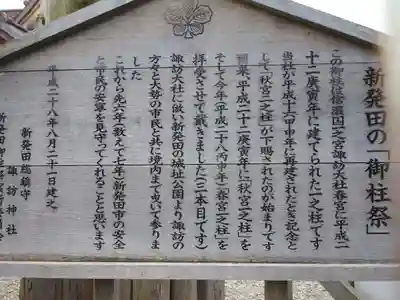 新発田の「御柱祭」
この御柱は信濃国一之宮諏訪大社春宮に平成二
十二庚寅年に建てられた一之柱です
当社が平成十六甲申年に再建されたとき記念と
して「秋宮一之柱」が下賜されたのが始まりです
平成二十二庚寅年に「秋宮一之柱」を
そして今年（平成二十八丙申年）「春宮一之柱」を
拝受させて戴きました（三本目です）
諏訪大社に倣い新発田の城址公園より諏訪の
方々と大勢の市民と共に境内まで曳いて参りま
した
これから先六年（数えて七年）新発田市の安全
と市民の安寧を見守ってくれることと思います
平成二十八年八月二十一日建之
新発田総鎮守
諏訪神社